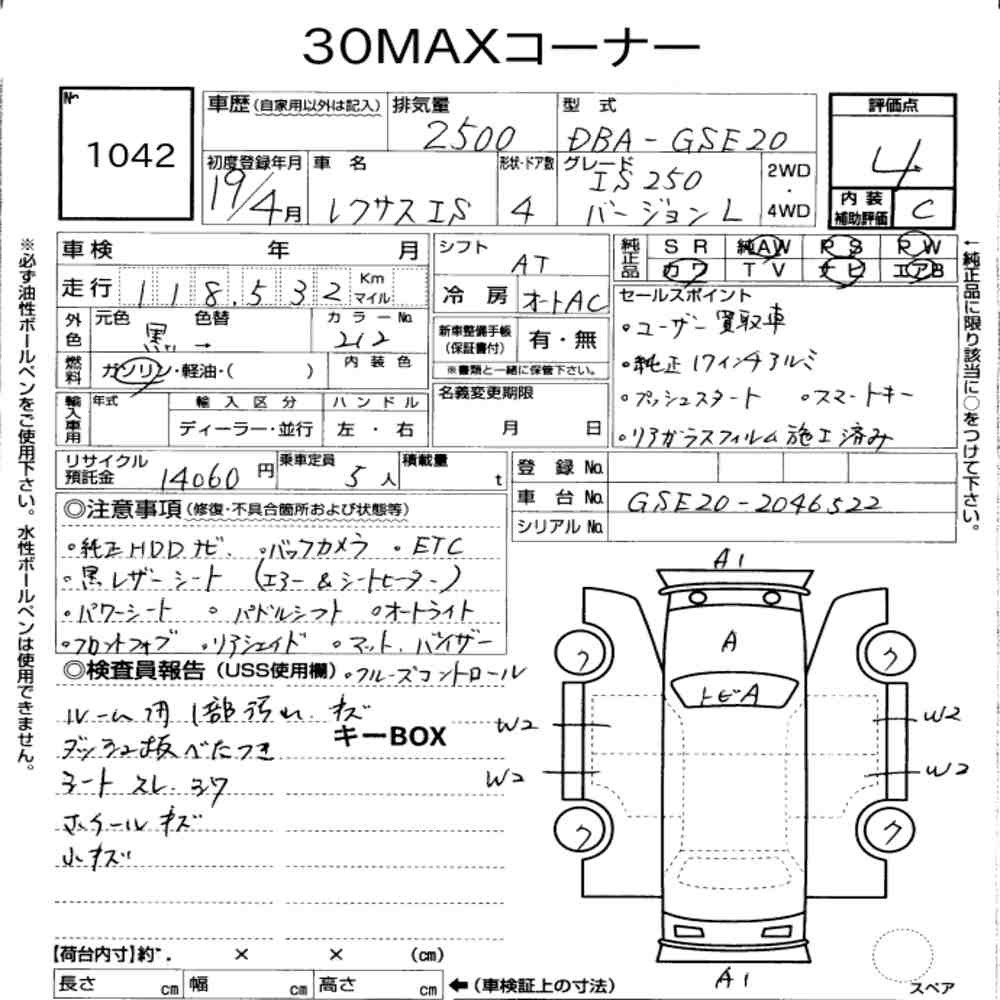 30MAXコーナー
№
1042
車歴(自家用以外は記入)
排気量
2500
型 式
DBA-GSE20
評価点
4
初度登録年月
19/4月
車 名
レクサス IS
形状・ドア数
4
グレード
IS 250
バージョン L
2WD
・
4WD
内 装
補助評価
C
車検 年 月
走行 118,532 Km
マイル
外色
元色 黒 色替 →
カラーNo.
212
燃料
ガソリン・軽油・( )
内 装 色
輸入車用
年式
輸 入 区 分
ディーラー・並行
ハ ン ド ル
左 ・ 右
シフト
AT
冷 房
オートAC
新車整備手帳
(保証書付)
有・無
※書類と一緒に保管下さい。
名義変更期限
月 日
純正品
SR 純AW PS PW
カワ TV ナビ エアB
セールスポイント
・ユーザー買取車
・純正17インチアルミ
・プッシュスタート ・スマートキー
・リアガラスフィルム施工済み
リサイクル
預託金 14060 円
乗車定員
5 人
積載量
t
登 録 No.
車 台 No.
GSE20-2046522
シリアルNo.
◎注意事項(修復・不具合箇所および状態等)
・純正HDDナビ ・バックカメラ ・ETC
・黒レザーシート (エアー&シートヒーター)
・パワーシート ・パドルシフト ・オートライト
・フロントフォグ ・リアシェイド ・マット、バイザー
◎検査員報告(USS使用欄)
・クルーズコントロール
ルーム内1部汚れ キズ
キーBOX
ダッシュ板べたつき
シート スレ、シワ
ホイールキズ
小キズ
【荷台内寸】約 . × × (cm)
長さ cm 幅 cm 高さ cm
←(車検証上の寸法)
A1
A
トビA
ク
ク
W2
W2
W2
W2
ク
ク
A1
スペア
※必ず油性ボールペンをご使用下さい。水性ボールペンは使用できません。
←純正品に限り該当に○をつけて下さい。